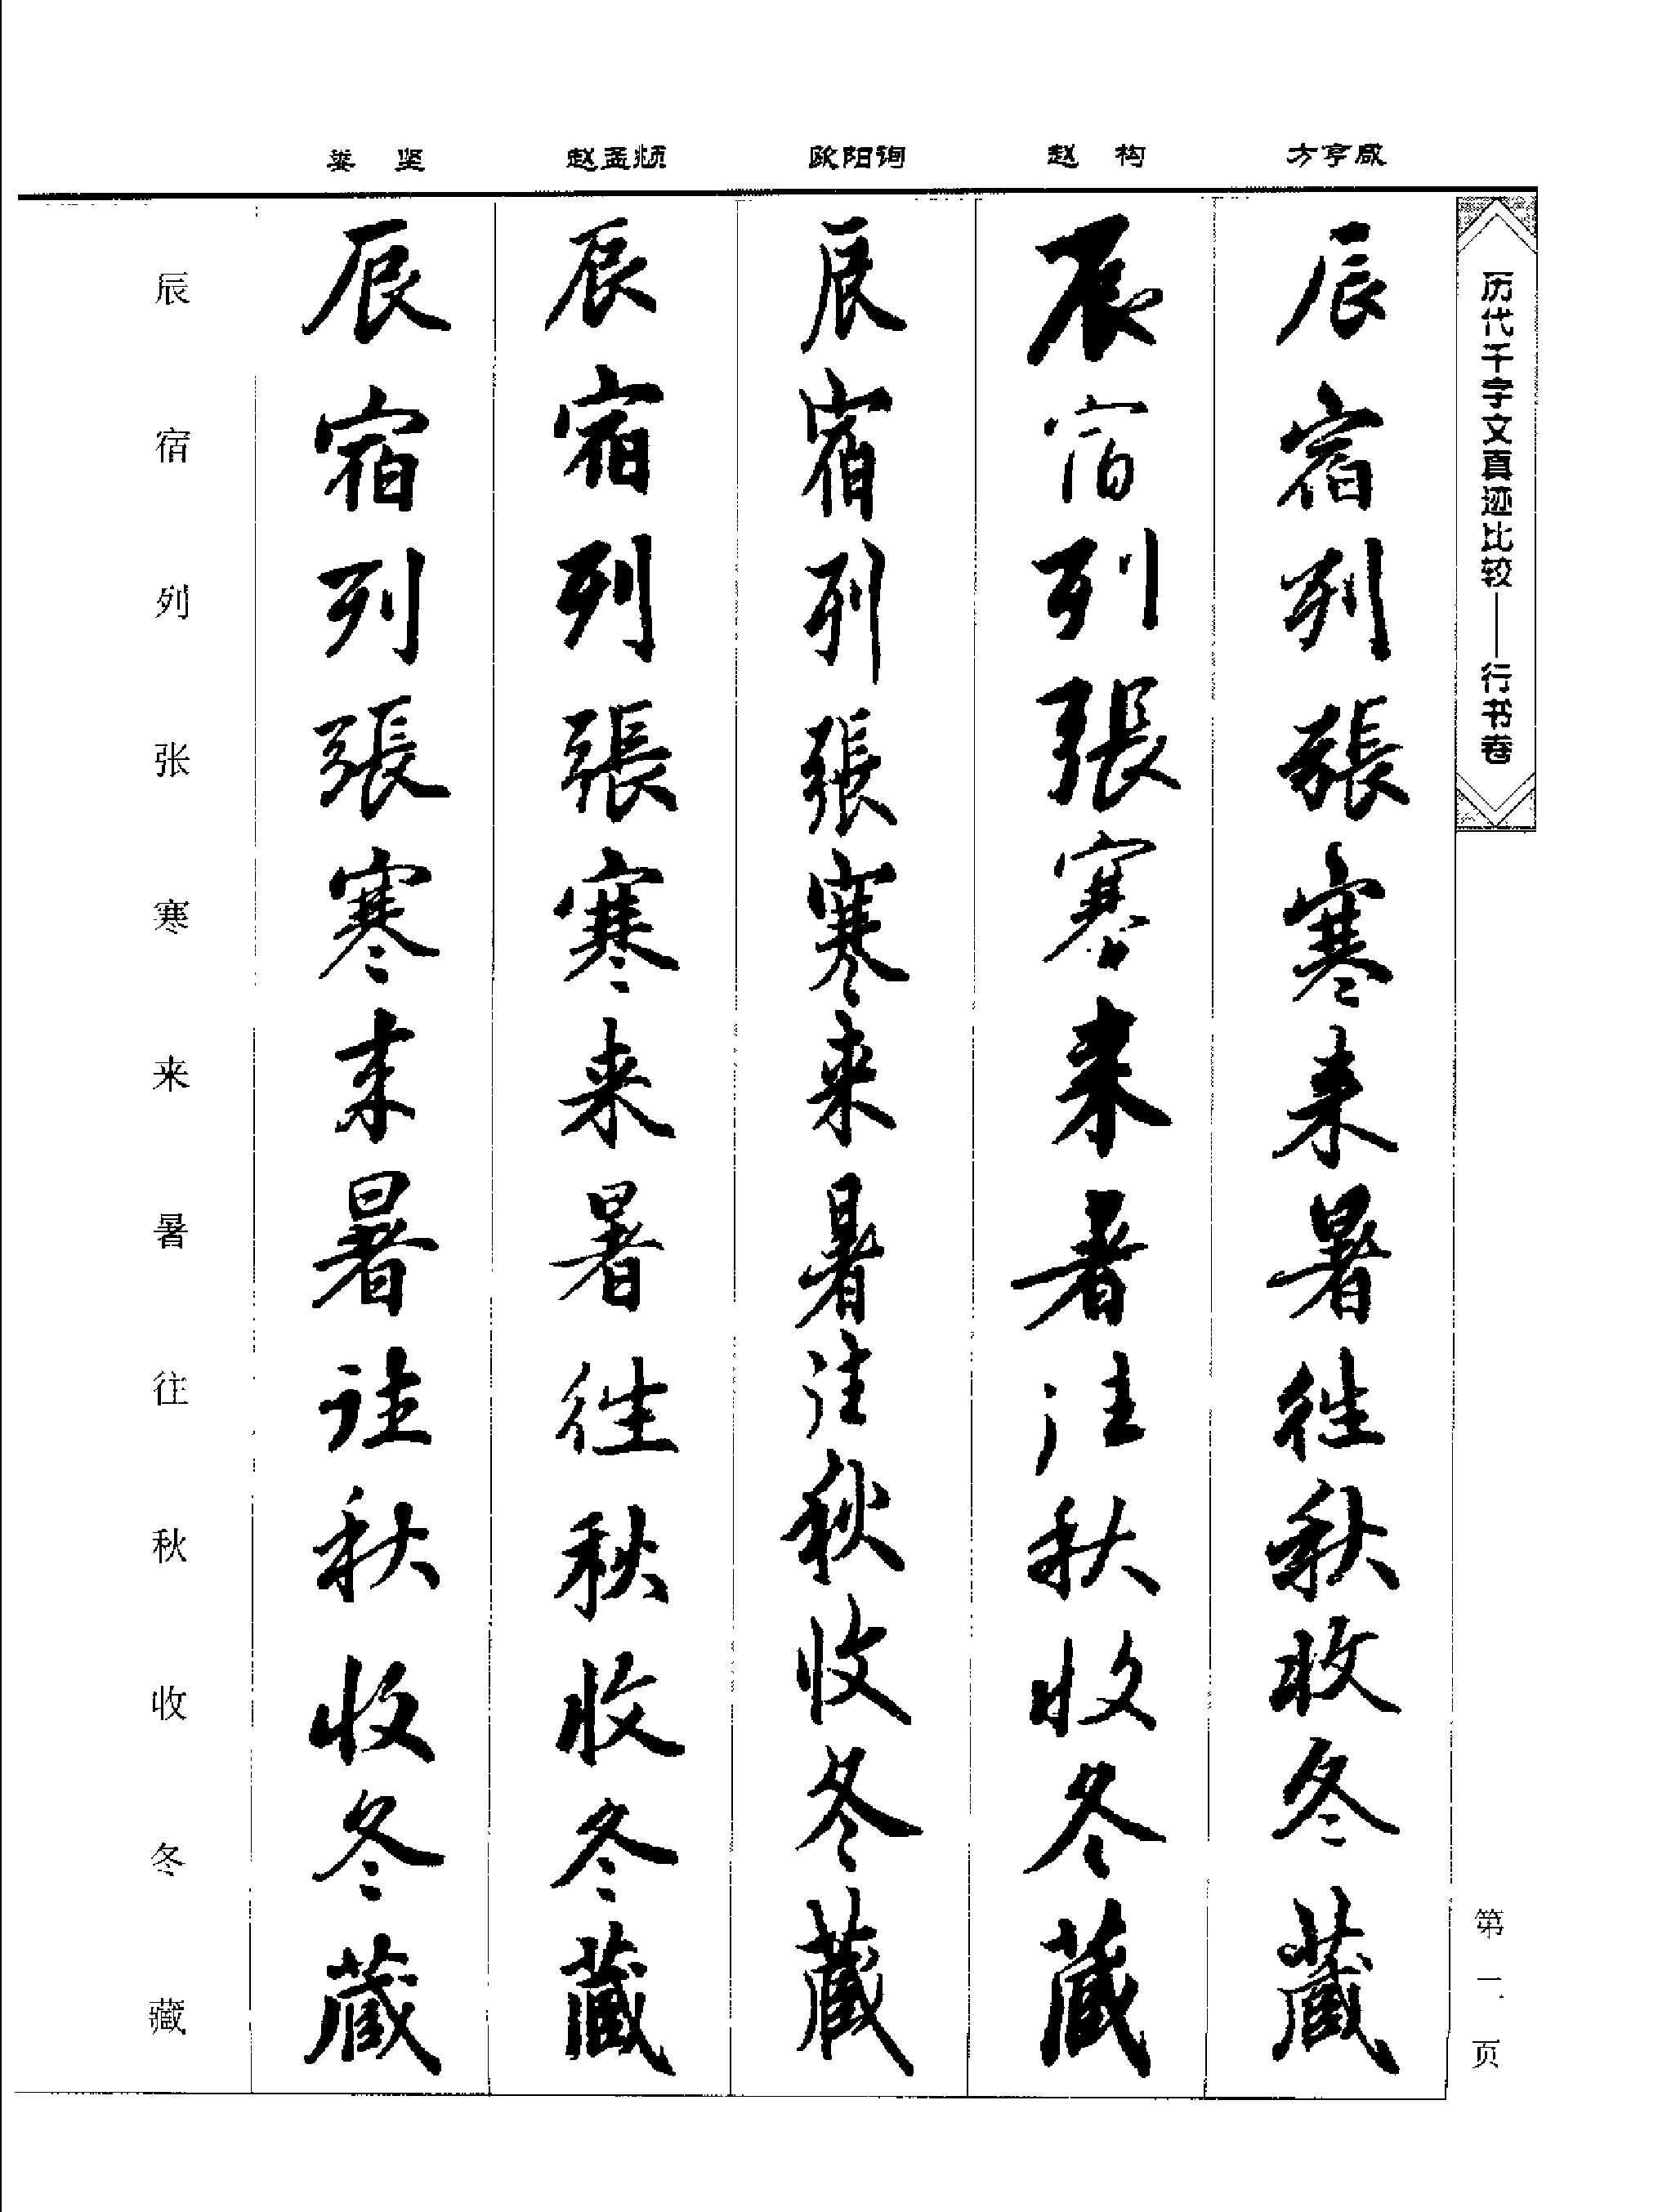 历代千字文真迹比较——行书卷
第二页
方亨咸
辰宿列張寒来暑往秋收冬藏
赵构
辰宿列張寒来暑往秋收冬藏
欧阳询
辰宿列張寒来暑往秋收冬藏
赵孟頫
辰宿列張寒来暑往秋收冬藏
娄坚
辰宿列張寒来暑往秋收冬藏
辰宿列张寒来暑往秋收冬藏